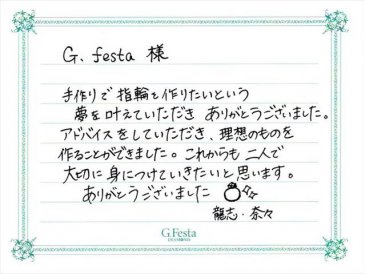 G. festa 様
手作りで指輪を作りたいという
夢を叶えていただき ありがとうございました。
アドバイスをしていただき、理想のものを
作ることができました。これからも 二人で
大切に身につけていきたいと思います。
ありがとうございました
龍志・奈々
G.Festa
DIAMOND